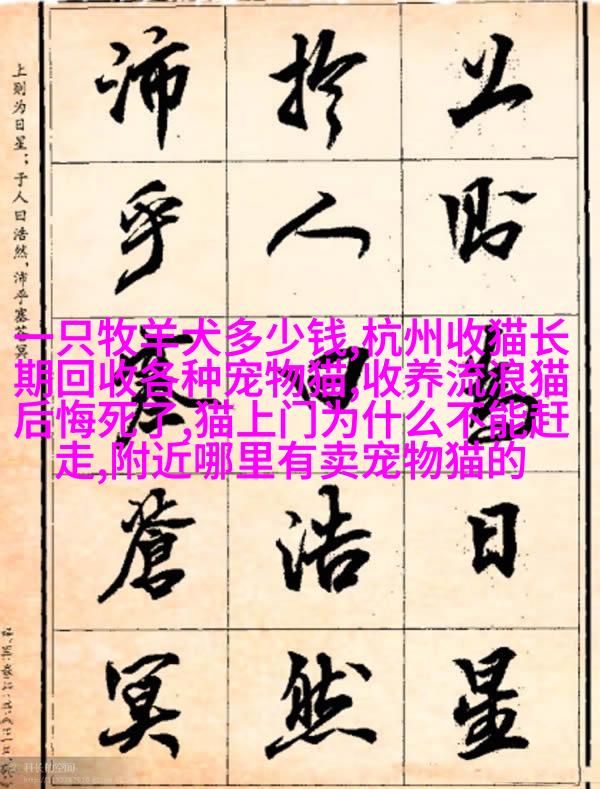 上則為日星
於人曰浩然
沛乎塞蒼冥
上则为日星；于人曰浩然，沛乎塞苍冥
一只牧羊犬多少钱,杭州收猫长
期回收各种宠物猫,收养流浪猫
后悔死了,猫上门为什么不能赶
走,附近哪里有卖宠物猫的
科长的空间